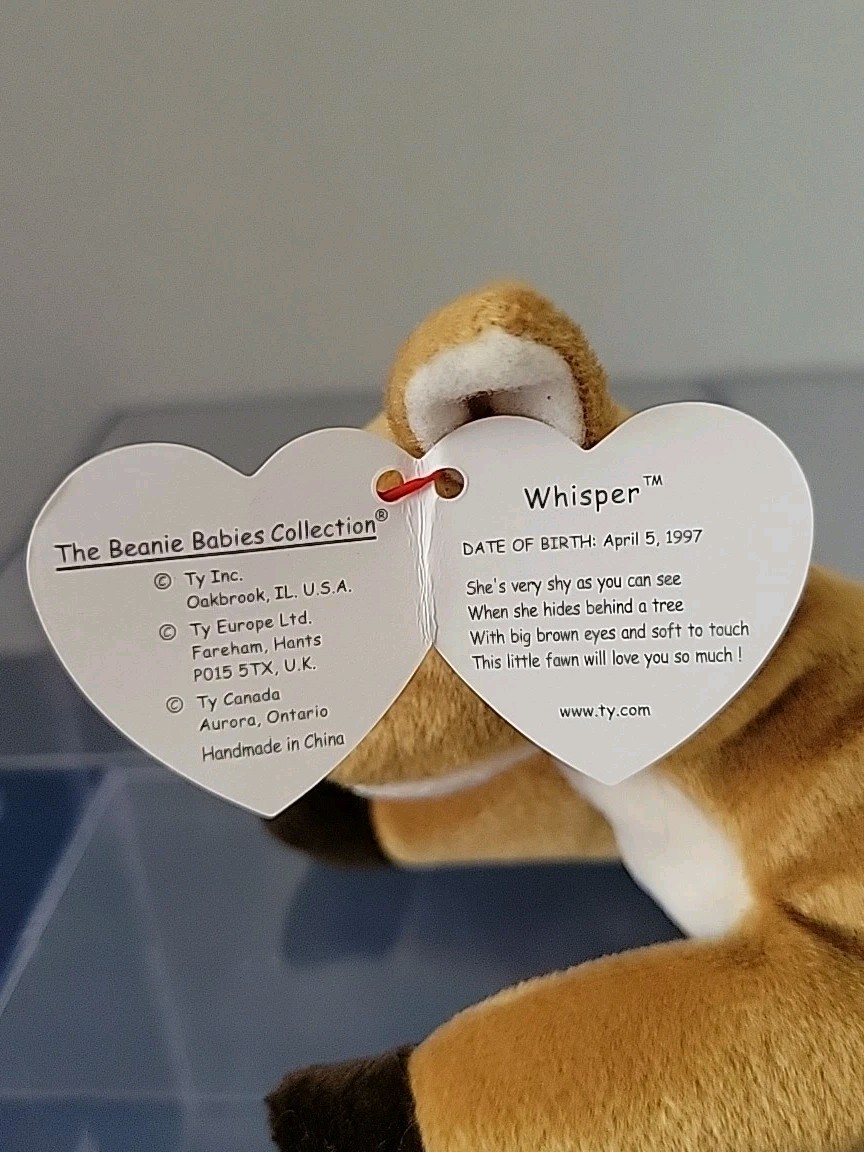 The Beanie Babies Collection®
© Ty Inc.
Oakbrook, IL. U.S.A.
© Ty Europe Ltd.
Fareham, Hants
P015 5TX, U.K.
© Ty Canada
Aurora, Ontario
Handmade in China
Whisper™
DATE OF BIRTH: April 5, 1997
She's very shy as you can see
When she hides behind a tree
With big brown eyes and soft to touch
This little fawn will love you so much !
www.ty.com